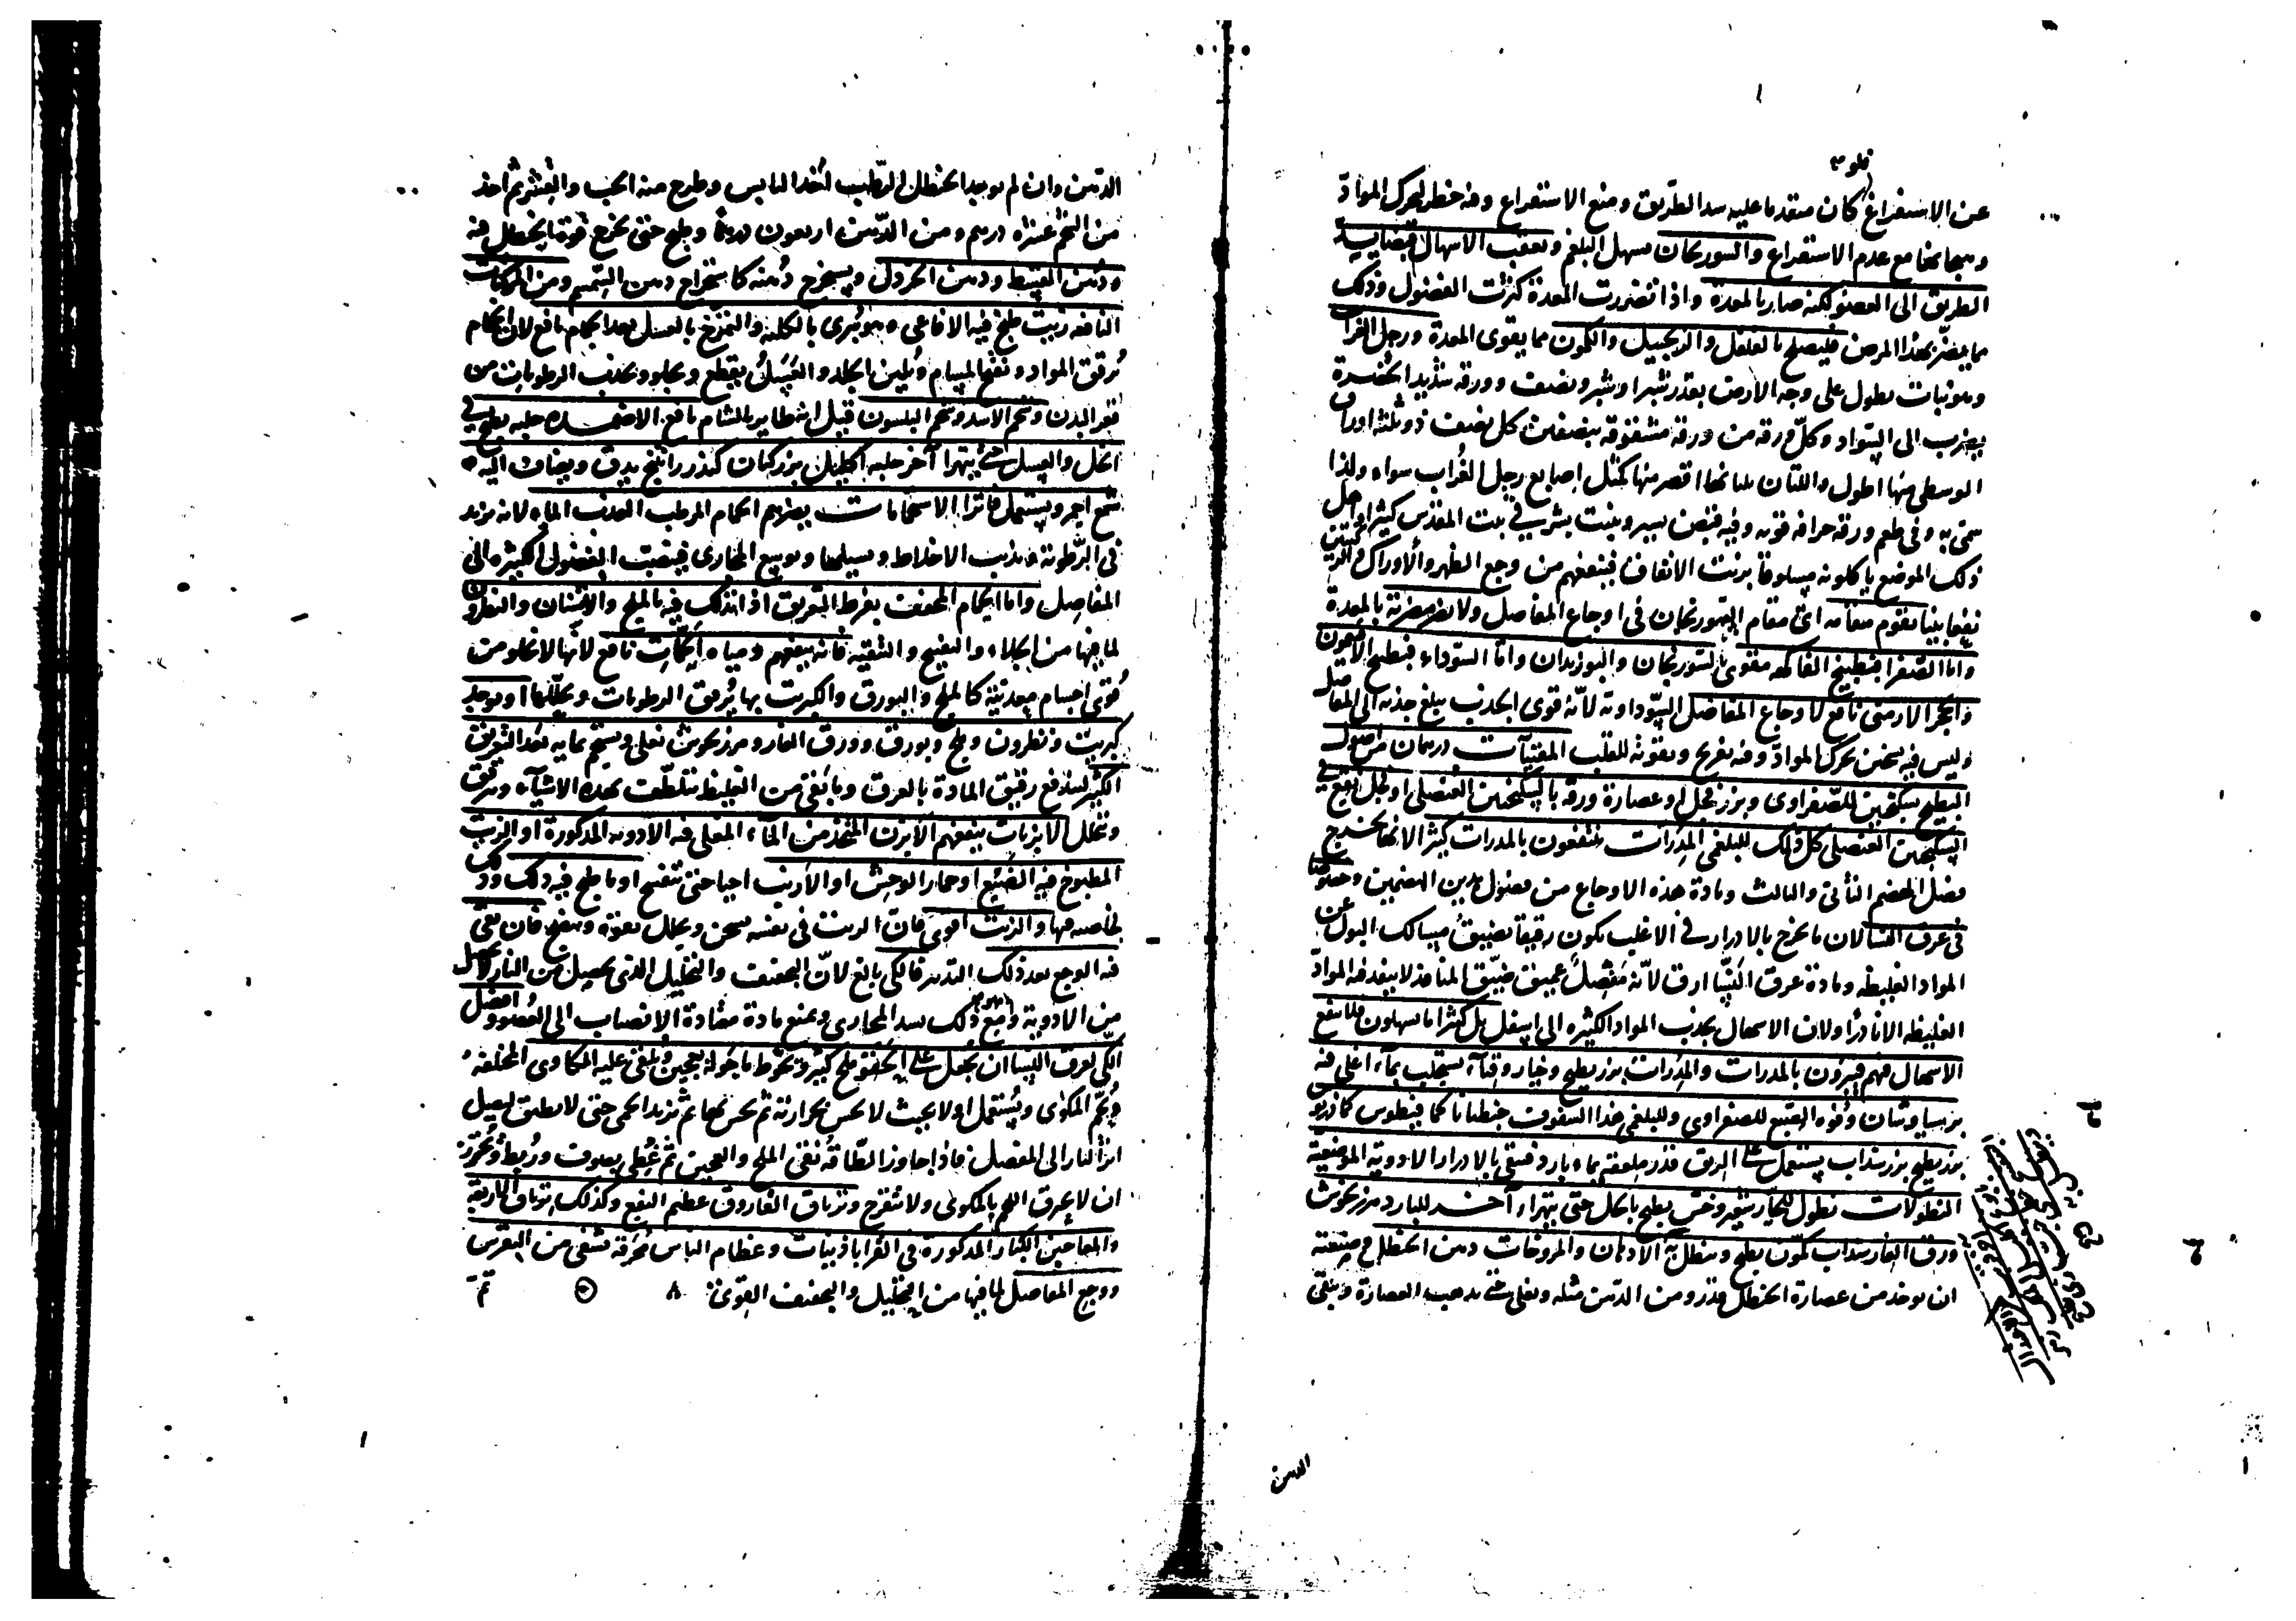 فلو
عن الاستفراغ كان متقدما عليه سد الطريق ومنع الاستفراغ وفيه خطر لتحرك المواد
وهيجانها مع عدم الاستفراغ والسورنجان مسهل البلغم ويعقب الاسهال قبضا يسد
الطريق الى العضو لكنه ضار بالمعدة واذا تضررت المعدة كثرت الفضول وذلك
مما يضر بهذا المرض فليصلح بالفلفل والزنجبيل والكمون مما يقوى المعدة ورجل الغراب
وهو نبات يطول على وجه الارض بقدر شبر او شبر ونصف وورقه شديد الخضرة
يضرب الى السواد وكل ورقه من ورقه مشقوقه بنصفين كل نصف ذو ثلثه اوراق
الوسطى منها اطول واللتان يليانها اقصر منها كمثل اصابع رجل الغراب سواء ولذا
سمى به وفى طعم ورقه حرافه قويه وفيه قبض يسير وينبت بشرب فى بيت المقدس كثيرا واهل
ذلك الموضع ياكلونه مسلوقا بزيت الانفاق فينفعهم من وجع الظهر والاوراك والركبتين
نفعا بينا يقوم مقامه اعنى مقام السورنجان فى اوجاع المفاصل ولا يضر مضرته بالمعدة
واما الصفرا فبطبيخ الفاكهه مقوى بالسورنجان والبوزيدان واما السوداء فبطبيخ الافتيمون
والحجر الارمنى نافع لاوجاع المفاصل السوداويه لانه قوى الجذب يبلغ جذبه الى المفاصل
وليس فيه سخن يحرك المواد وفيه تفريح وتقويه للقلب المقيئات درهمان من اصول
البطيخ بسكنجبين للصفراوى وبزر فجل او عصارة ورقه بالسكنجبين العنصلى او فجل نقع فى
السكنجبين العنصلى كل ذلك للبلغمى المدرات ينتفعون بالمدرات كثيرا لانها تخرج
فضل الهضم الثانى والثالث ومادة هذه الاوجاع من فضول هذين الهضمين وخصوصا
فى عرق النسا لان ما يخرج بالادرار فى الاغلب يكون رقيقا لضيق مسالك البول عن
المواد الغليظه ومادة عرق النسا ارق لانه مفصل عميق ضيق المنافذ لا ينفذ فيه المواد
الغليظه الا نادرا ولان الاسهال يجذب المواد الكثيره الى اسفل بل كثيرا ما يسهلون فلا ينفع
الاسهال فيهم فيبرون بالمدرات والمدرات بزر بطيخ وخيار وقثاء يستحلب بماء اغلى فيه
برسياوشان وفوه الصبغ للصفراوى وللبلغمى هذا السفوف جنطيانا كمافيطوس كمادريوس
بزر بطيخ بزر سداب يستعمل على الريق قدر ملعقه بماء بارد فينقى بالادرار الادوية الموضعية
النطولات نطول للحار شعير وخس يطبخ بالخل حتى يتهرا آخر للبارد مرزنجوش
ورق الغار سداب كمون يطبخ وينطل به الادهان والمروخات دهن الحنظل وصنعته
ان يوخذ من عصارة الحنظل قدر ومن الدهن مثله ويغلى حتى يذهب العصارة ويبقى
الدهن
الدهن وان لم يوجد الحنظل الرطب اخذ اليابس وطرح منه الحب والقشر ثم اخذ
من الشحم عشره درهم ومن الدهن اربعون درهما وطبخ حتى تخرج قوة الحنظل فيه
ودهن القسط ودهن الخردل ويستخرج دهنه كاستخراج دهن السمسم ومن المركبات
النافعه زيت طبخ فيه الافاعى وهو يبرى بالكليه والتمرخ بالعسل بعد الحمام نافع لان الحمام
يرقق المواد ويفتح المسام ويلين الجلد والعسل يقطع ويجلو ويجذب الرطوبات من
قعر البدن وشحم الاسد وشحم البلسون قيل انه طاير بالشام نافع الاضمده حلبه يطبخ فى
الخل والعسل حتى يتهرا آخر حلبه اكليل بزر كتان كندر راتينج يدق ويضاف اليه
شمع احمر ويستعمل فاترا الاستحمامات يضرهم الحمام المرطب العذب الماء لانه يزيد
فى الرطوبة ويذيب الاخلاط ويسيلها ويوسع المجارى فينصب الفضول الكثيره الى
المفاصل واما الحمام المجفف بفرط التعريق اذا اتدلك فيه بالملح والاشنان والنطرون
لما فيها من الجلاء والتفتيح والتنقيه فانه ينفعهم ومياه الحمات نافع لانها لا تخلو من
قوى اجسام معدنية كالملح والبورق والكبريت بها يرقق الرطوبات ويحللها او يوخذ
كبريت ونطرون وملح وبورق وورق الغار ومرزنجوش يغلى ويستحم بمايه بعد التعريق
الكثير ليندفع رقيق المادة بالعرق وما بقى من الغليظ يتلطف بهذه الاشياء ويرقق
ويتحلل الابزنات ينفعهم الابزن المتخذ من الماء المغلى فيه الادويه المذكورة او الزيت
المطبوخ فيه الضبع او حمار الوحش او الارنب احيا حتى تتفسخ او ما طبخ فيه ذلك وذلك
لخاصيه فيها والزيت اقوى فان الزيت فى نفسه يسخن ويحلل بقوة وينضج فان بقى
فيه الوجع بعد ذلك التدبير فالكى بالغ لان التجفيف والتحليل الذى يحصل من النار لا يحصل
من الادوية ومع ذلك سد المجارى ويمنع مادة معتادة الانصباب الى العضو وافضل
الكى لعرق النسا ان يجعل على الحق ملح كثير ويحوط ما حوله بعجين ويلقى عليه المكاوى المختلفه
ويحمى المكوى ويستعمل اولا بحيث لا يحس بحرارته ثم يحس بها ثم تزيد الحمى حتى لا يطيق ليصل
اثر النار الى المفصل فاذا جاوز الطاقه نقى الملح والعجين ثم غطى بصوف وربط ويحترز
ان لا يحرق اللحم بالمكوى ولا يتقرح وترياق الفاروق عظيم النفع وكذلك ترياق الاربعة
والمعاجين الكبار المذكورة فى القراباذينيات وعظام الناس محرقه تشفى من النقرس
ووجع المفاصل لما فيها من التحليل والتجفيف القوى تمت